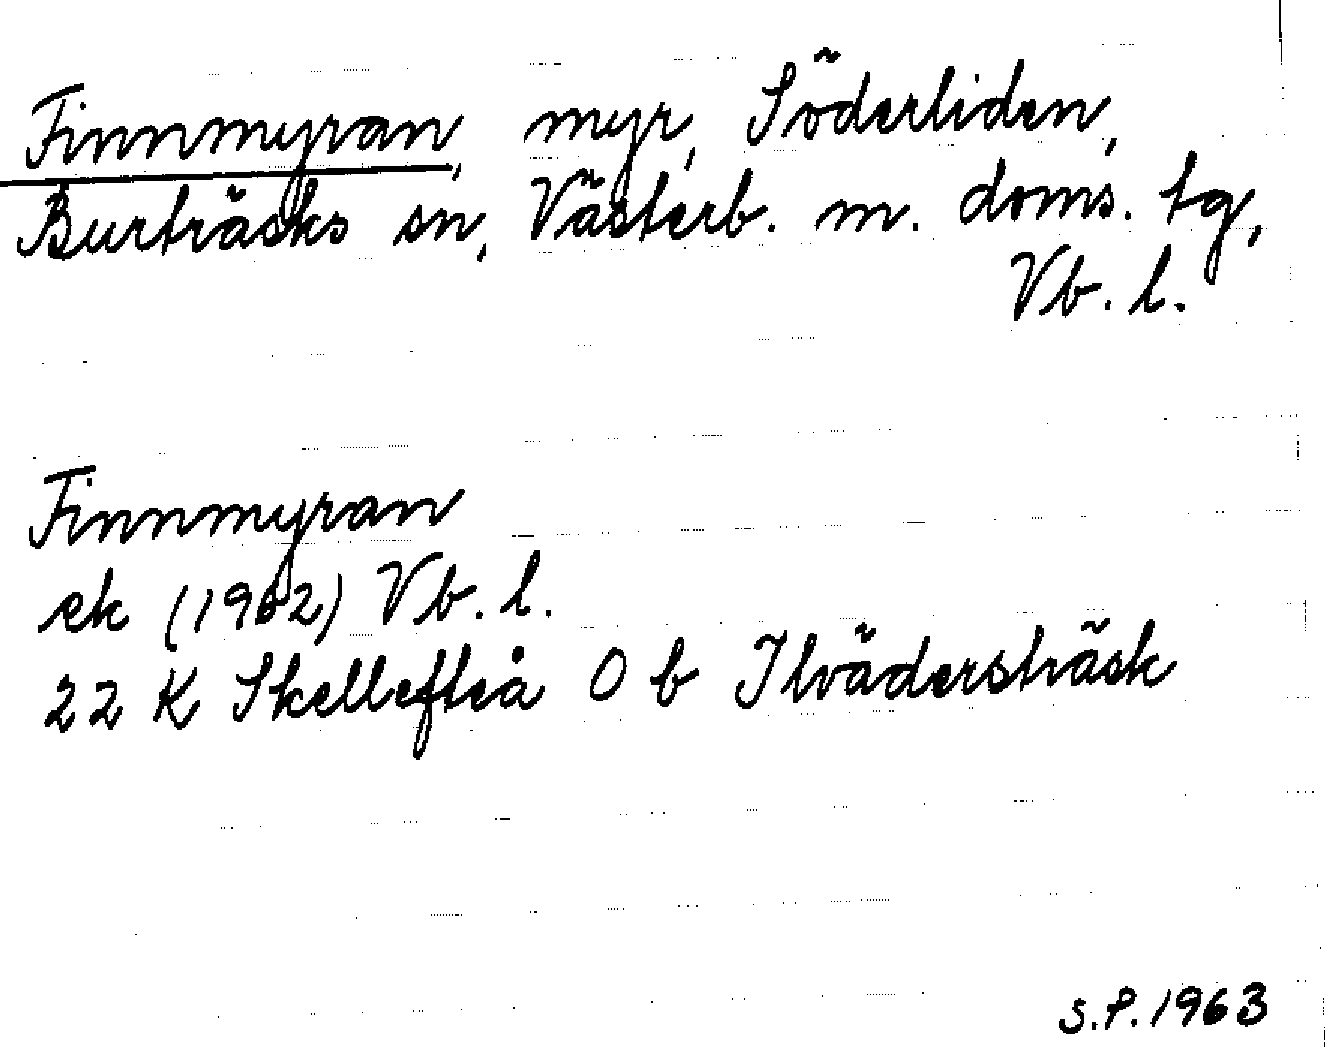 Finnmyran, myr, Söderliden,
Burträsks sn, Västerb. m. doms. tg,
Vb. l.
Finnmyran
ek (1962) Vb. l.
22 K Skellefteå 0 b Ilvädersträsk
S.P. 1963